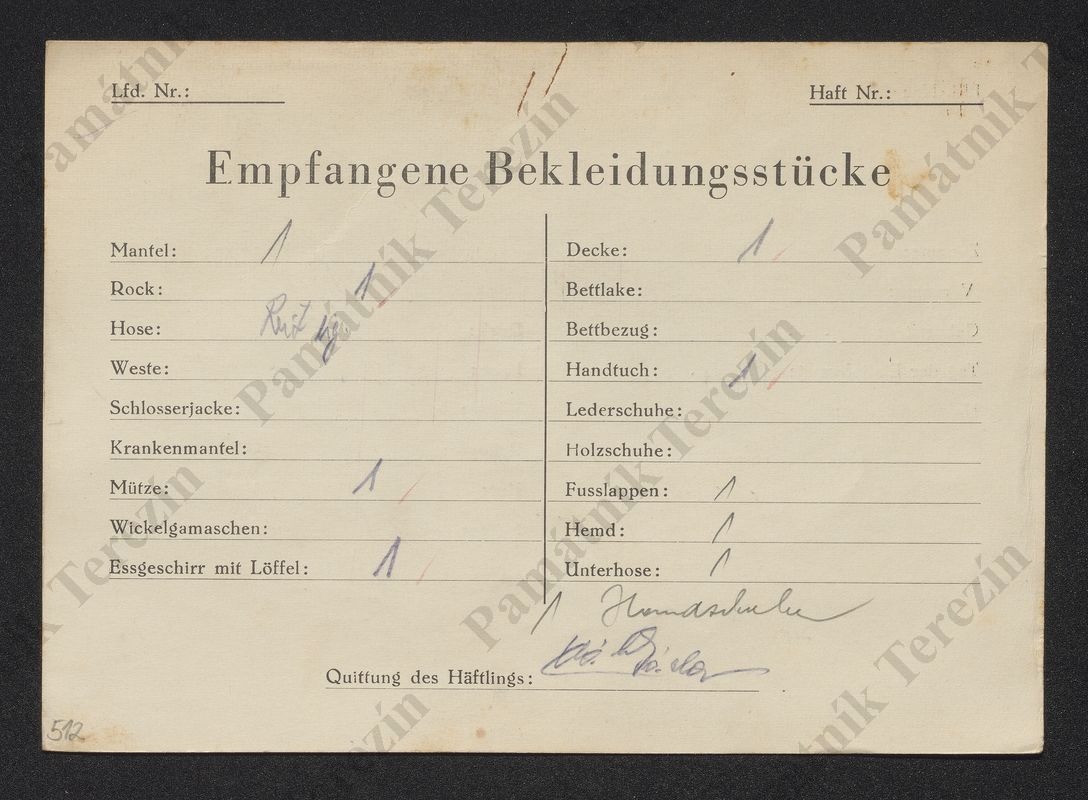 Lfd. Nr.:
Haft Nr.:
Empfangene Bekleidungsstücke
Mantel: 1
Rock: 1
Hose:
Weste:
Schlosserjacke:
Krankenmantel:
Mütze: 1
Wickelgamaschen:
Essgeschirr mit Löffel: 1
Decke: 1
Bettlake:
Bettbezug:
Handtuch: 1
Lederschuhe:
Holzschuhe:
Fusslappen: 1
Hemd: 1
Unterhose: 1
1 Handschuhe
Quittung des Häftlings:
512
Památník Terezín